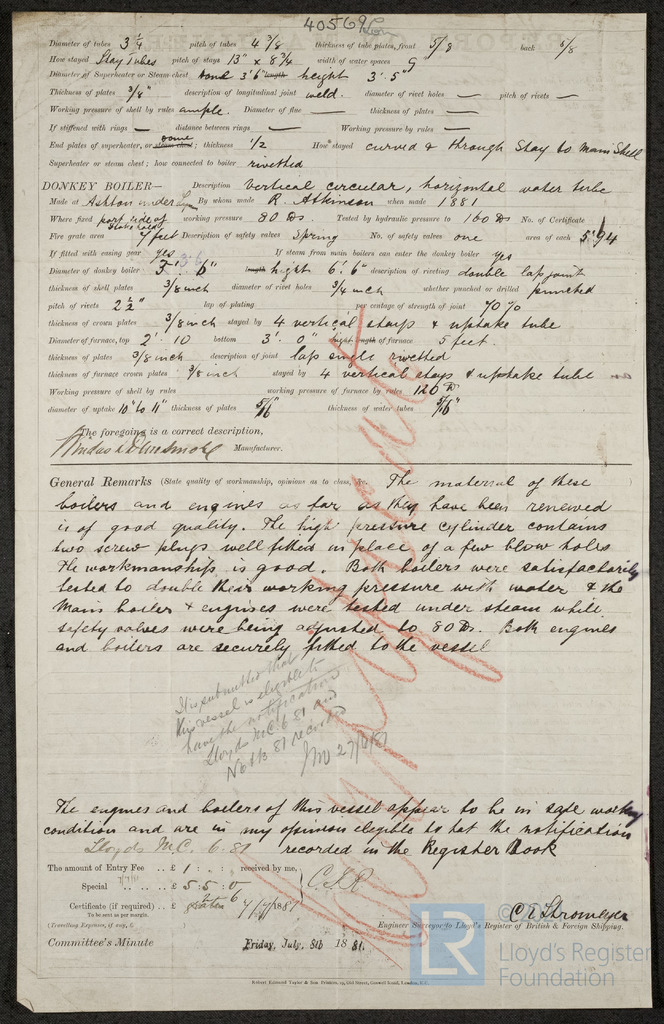 40569
Diameter of tubes 3 1/4 pitch of tubes 4 3/8 thickness of tube plates, front 5/8 back 5/8
How stayed Stay Tubes pitch of stays 13" x 8 3/4 width of water spaces 9
Diameter of Superheater or Steam chest dome 3' 6" length height 3' 5"
Thickness of plates 3/8" description of longitudinal joint weld. diameter of rivet holes — pitch of rivets —
Working pressure of shell by rules ample. Diameter of flue — thickness of plates —
If stiffened with rings — distance between rings — Working pressure by rules —
End plates of superheater, or steam chest; dome thickness 1/2 How stayed curved & through stay to main shell
Superheater or steam chest; how connected to boiler rivetted
DONKEY BOILER— Description Vertical circular, horizontal water tube
Made at Ashton under Lyne By whom made R. Atkinson when made 1881
Where fixed port side of Stokehold working pressure 80 lbs Tested by hydraulic pressure to 160 lbs No. of Certificate
Fire grate area 7 feet Description of safety valves Spring No. of safety valves one area of each 5.94
If fitted with easing gear yes If steam from main boilers can enter the donkey boiler yes
Diameter of donkey boiler 3' 6" length hight 6' 6" description of riveting double lap joint
thickness of shell plates 3/8 inch diameter of rivet holes 3/4 inch whether punched or drilled punched
pitch of rivets 2 1/2" lap of plating per centage of strength of joint 70 %
thickness of crown plates 3/8 inch stayed by 4 vertical stays & uptake tube
Diameter of furnace, top 2' 10 bottom 3' 0" length of furnace 5 feet.
thickness of plates 3/8 inch description of joint lap single rivetted
thickness of furnace crown plates 3/8 inch stayed by 4 vertical stays & uptake tube
Working pressure of shell by rules working pressure of furnace by rules 126 lbs
diameter of uptake 10" to 11" thickness of plates 5/16" thickness of water tubes 5/16"
The foregoing is a correct description,
Manufacturer.
General Remarks (State quality of workmanship, opinions as to class, &c. The material of these
boilers and engines as far as they have been renewed
is of good quality. The high pressure cylinder contains
two screw plugs well fitted in place of a few blow holes
The workmanship is good. Both boilers were satisfactorily
tested to double their working pressure with water & the
Main boiler & engines were tested under steam while
safety valves were being adjusted to 80 lbs. Both engines
and boilers are securely fitted to the vessel
It is submitted that
this vessel is eligible to
have the notification
Lloyds M.C. 6 81 and
N DB 81 recorded
27/7/81
The engines and boilers of this vessel appear to be in safe working
condition and are in my opinion eligible to hat the notification
Lloyds M.C. 6.81 recorded in the Register Book
The amount of Entry Fee .. £ 1 : . : received by me,
Special .. £ 5 : 5 : 0 C.S.R
Certificate (if required) .. £ 7/7/1881
To be sent as per margin.
(Travelling Expenses, if any, £ ) C E Stromeyer
Engineer Surveyor to Lloyd's Register of British & Foreign Shipping.
Committee's Minute Friday, July, 8th 1881.
Robert Edmund Taylor & Son Printers, 19, Old Street, Goswell Road, London, E.C.
LR
Lloyd's Register
Foundation